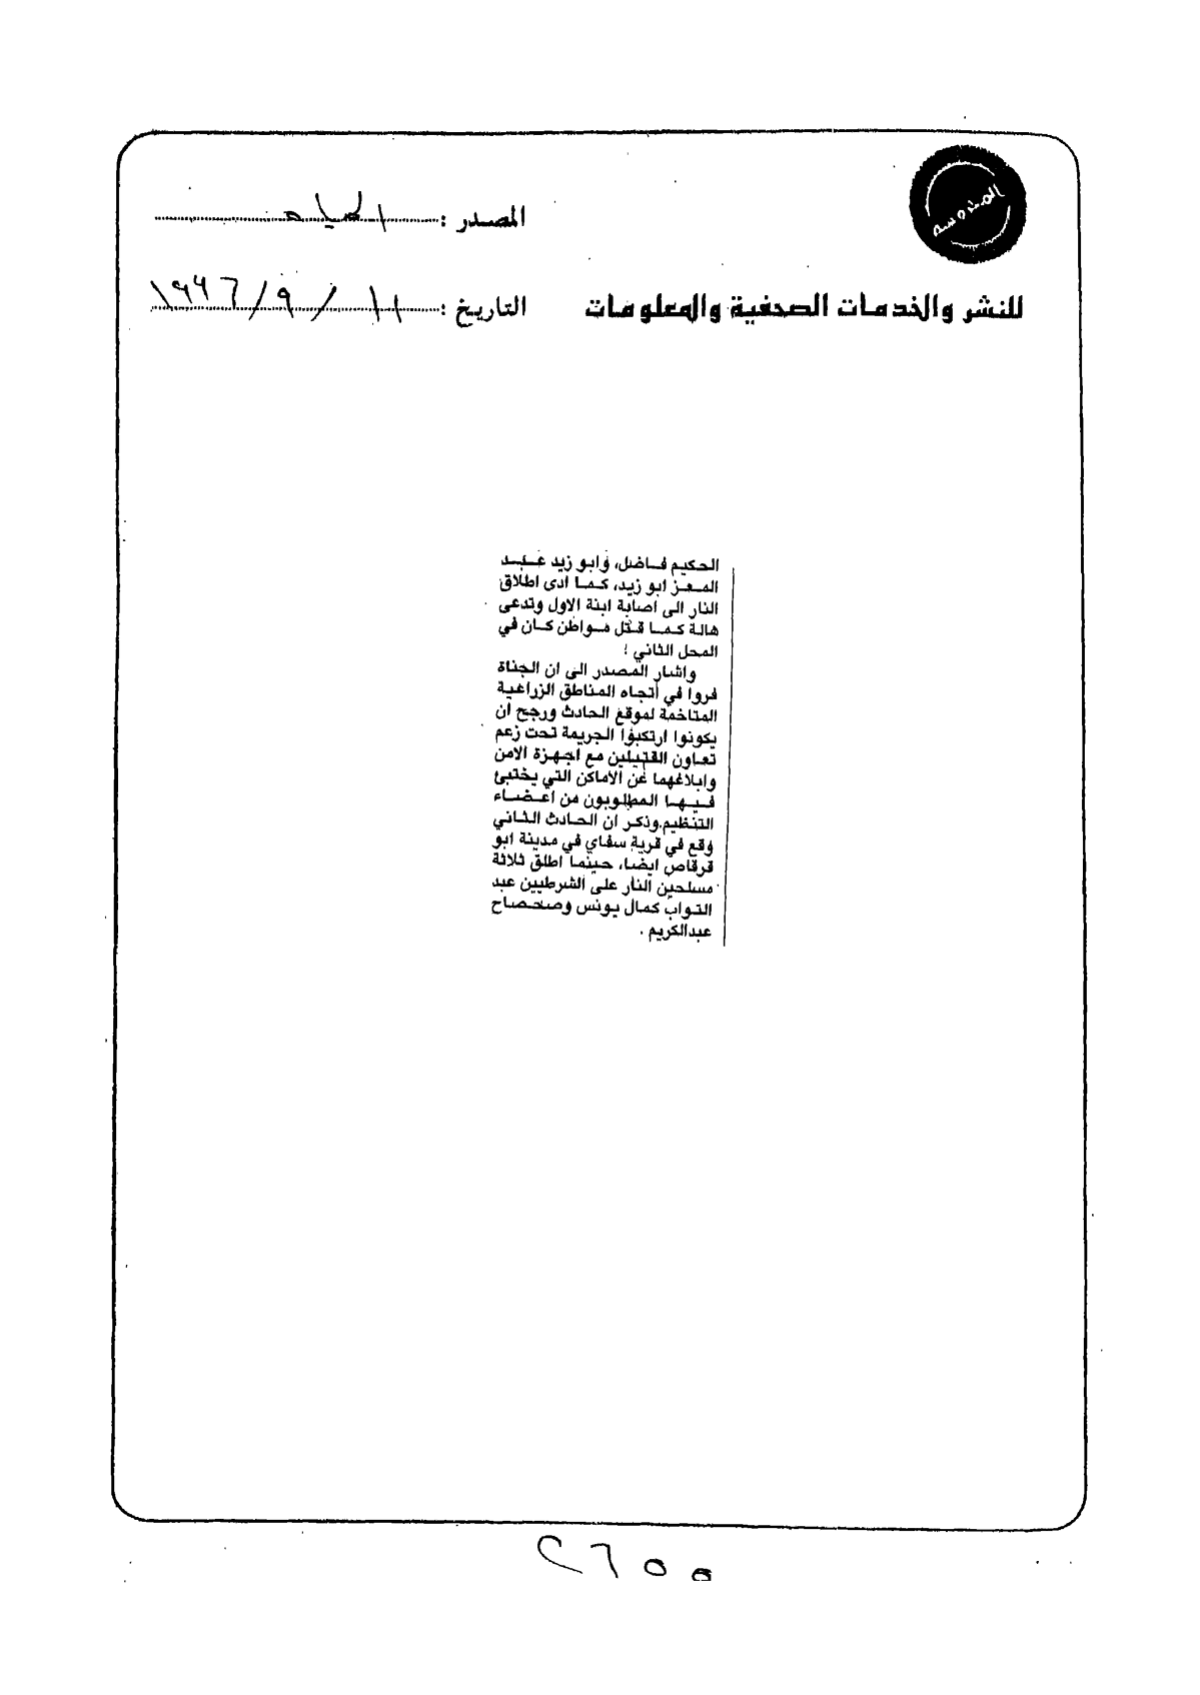 المدروسه
المصدر : الحياه
للنشر والخدمات الصحفية والمعلومات
التاريخ : ١١ / ٩ / ١٩٩٦
الحكيم فاضل، وابو زيد عبد
المعز ابو زيد، كما ادى اطلاق
النار الى اصابة ابنة الاول وتدعى
هالة كما قتل مواطن كان في
المحل الثاني !
واشار المصدر الى ان الجناة
فروا في اتجاه المناطق الزراعية
المتاخمة لموقع الحادث ورجح ان
يكونوا ارتكبوا الجريمة تحت زعم
تعاون القتيلين مع اجهزة الامن
وابلاغهما عن الاماكن التي يختبئ
فيها المطلوبون من اعضاء
التنظيم.وذكر ان الحادث الثاني
وقع في قرية سفاي في مدينة ابو
قرقاص ايضا، حينما اطلق ثلاثة
مسلحين النار على الشرطيين عبد
التواب كمال يونس وصحصاح
عبدالكريم .
٢٦٥٥